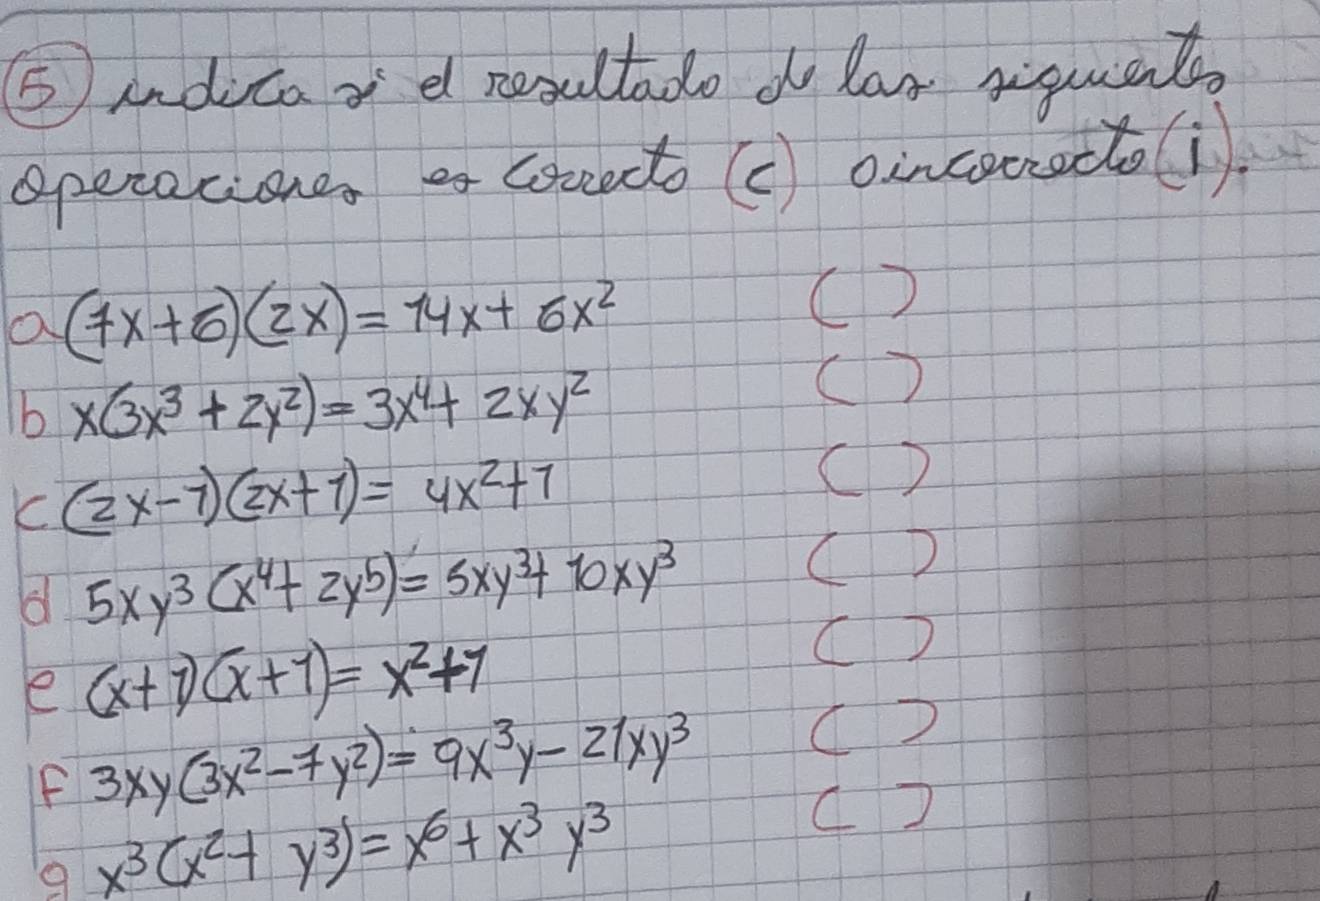 5 indica si el resultado de las siguientes
operaciones es correcto (c) o incorrecto (i).
a (7x+6)(2x) = 14x + 6x² ( )
b x(3x³ + 2y²) = 3x⁴ + 2xy² ( )
c (2x-1)(2x+1) = 4x²+1 ( )
d 5xy³(x⁴+2y⁵) = 5xy³+10xy³ ( )
e (x+1)(x+1) = x²+1 ( )
f 3xy(3x²-7y²) = 9x³y-21xy³ ( )
g x³(x²+y³) = x⁶+x³y³ ( )